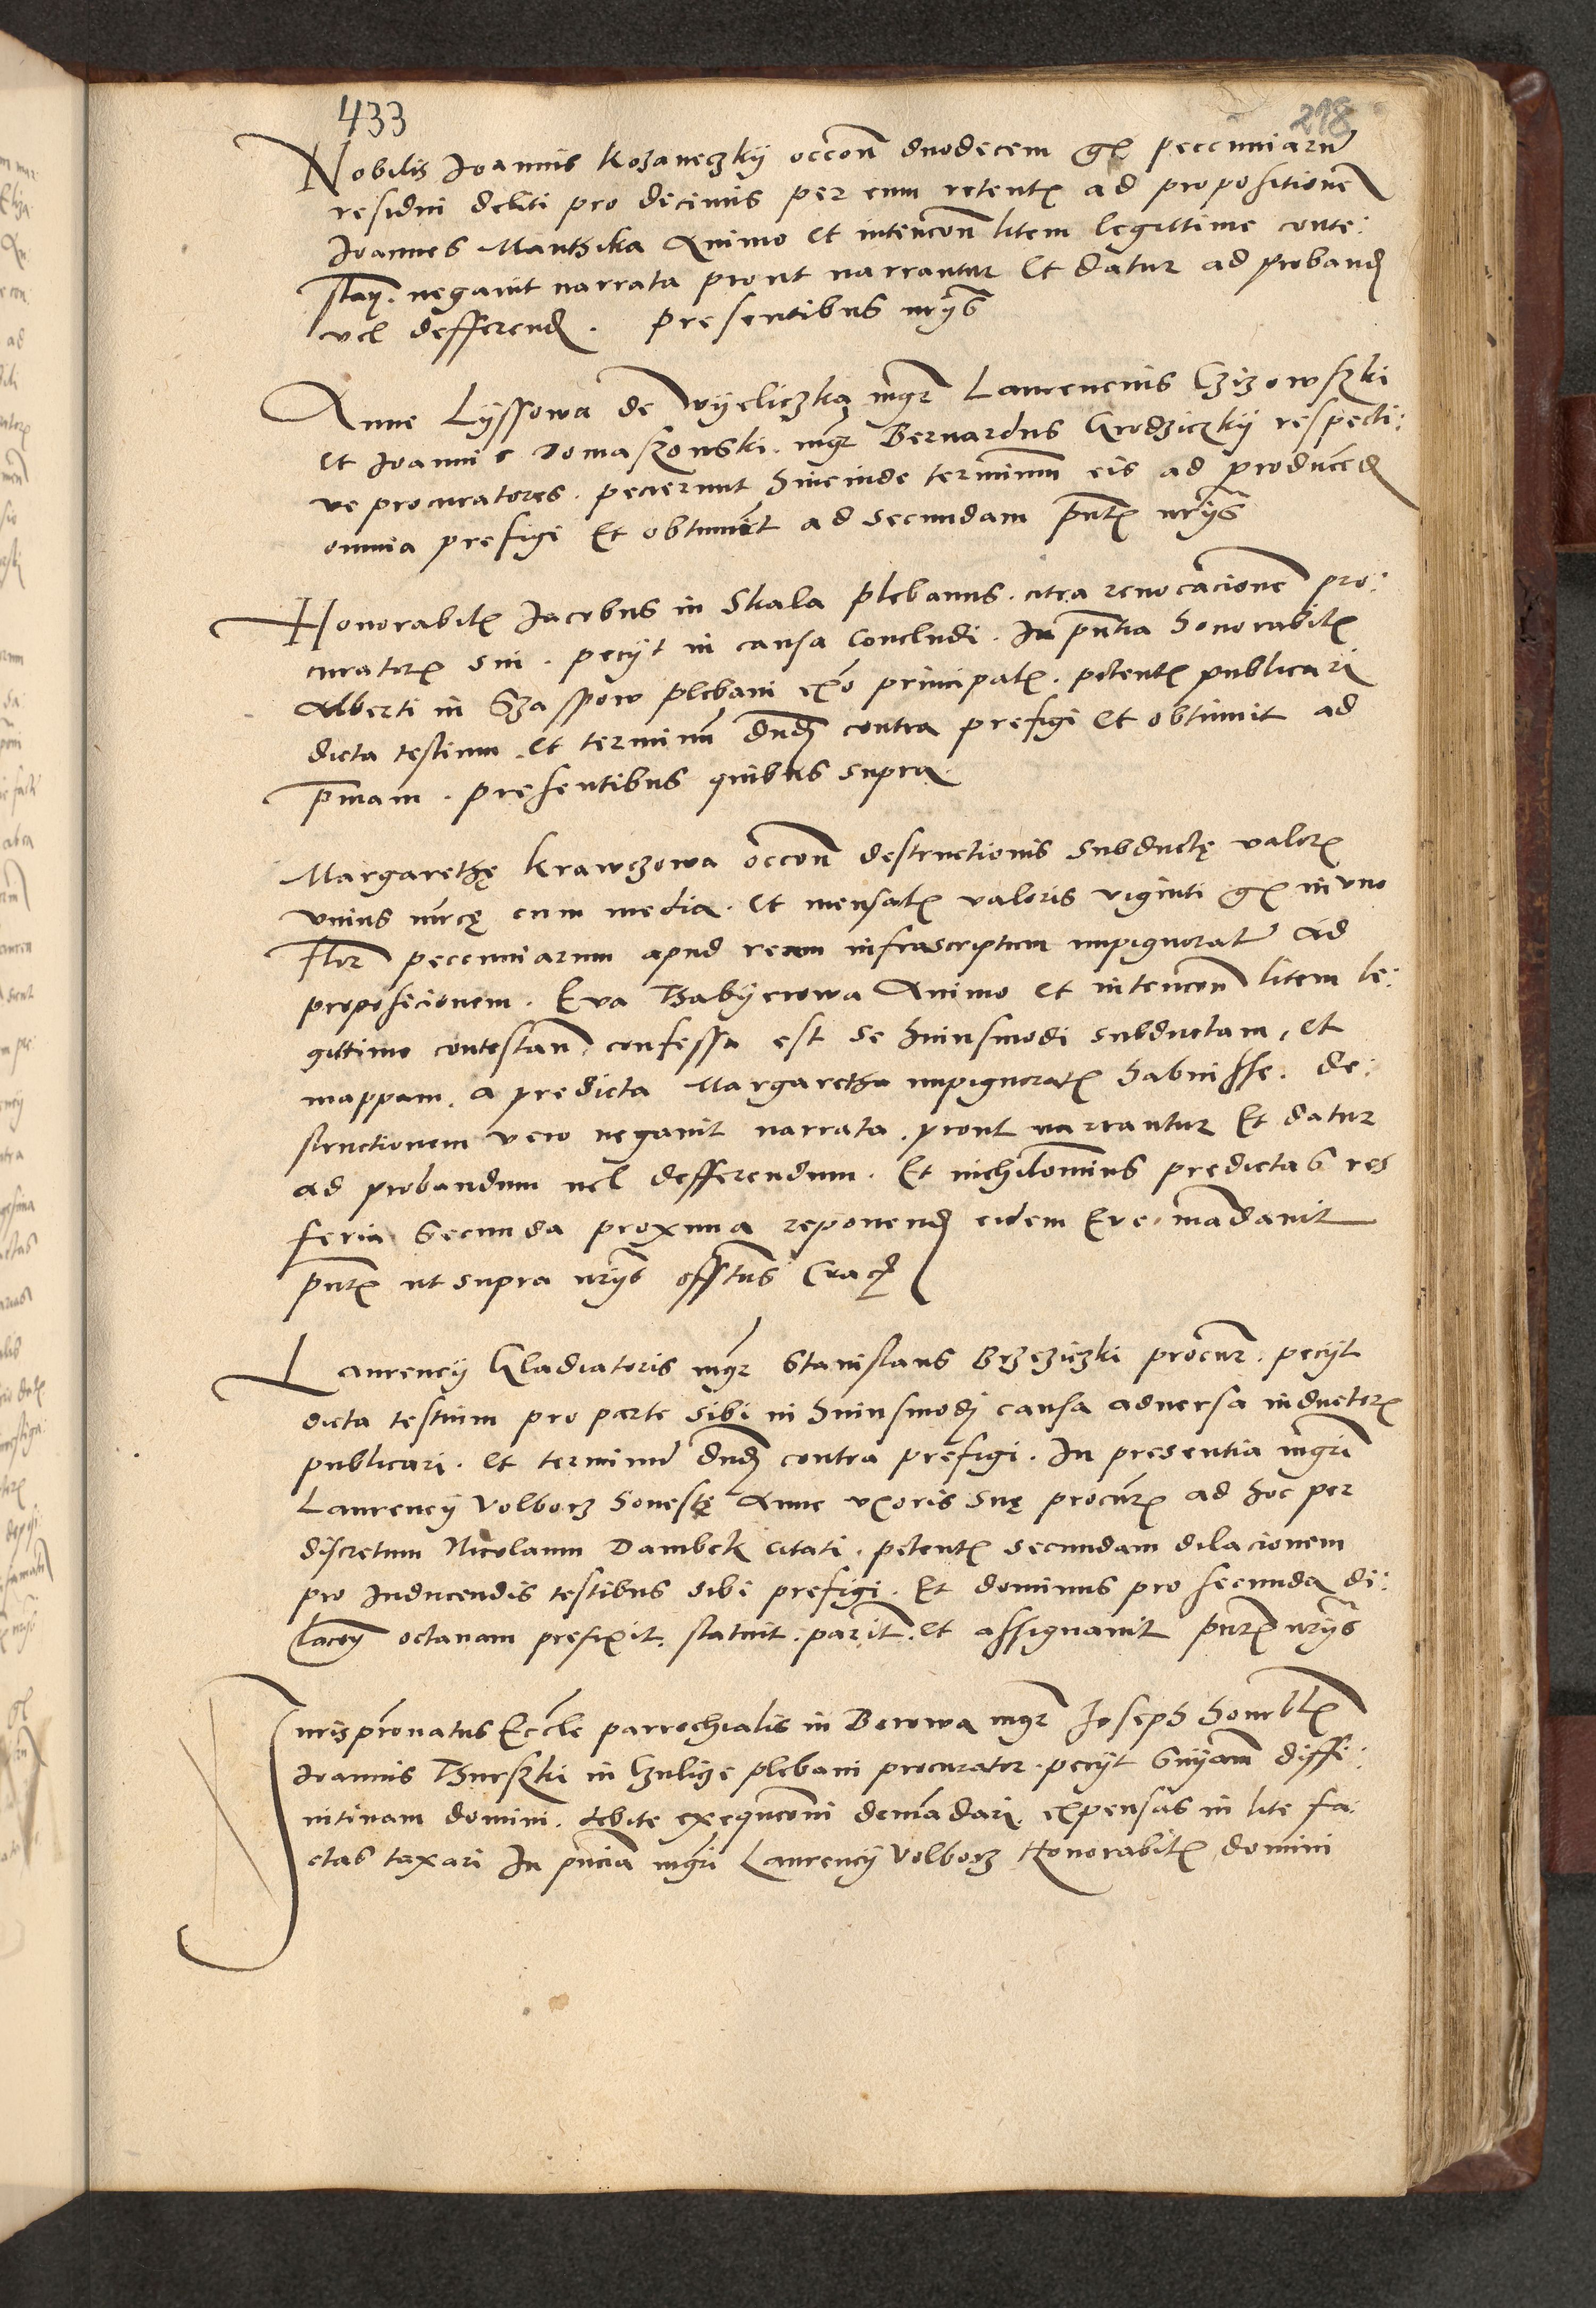 433
218
Nobilis Joannis Kozaneczky occōn duodecem gr peccuniarū
residui debiti pro decimis per eum retentr ad propositionē
Joannes Manthika Animo et intencōn litem legittime conte:
stan. negauit narrata prout narrantur Et datur ad proband
vel defferend. presentibus nrījs
Anne Lyssowa de Wyeliczka mgr Laurencius Czizowszki
et Joannis Domaszonski. mgr Bernardus Grodziczky respecti:
ue procuratores. pecierunt hincinde terminum eis ad producēd
omnia prefigi Et obtinuit ad secundam pn̄tr nrījs
Honorabilr Jacobus in Skala plebanus. citra reuocacionē pro:
curatorr sui. pecijt in causa concludi. In pn̄tia honorabilr
Alberti in Szasspow plebani exo principalr. petentr publicari
dicta testium. et terminū dnd contra prefigi et obtinuit ad
pmam. presentibus quibus supra.
Margarethę Krawczowa occōn destructionis subductę valorr
vnius mrcę cum media. et mensalr valoris viginti gr in vno
Flor peccuniarum apud ream infrascriptum impignoratr Ad
proposicionem. Eua Thabyerowa Animo et intencōn litem le:
gittime contestan. confessa est se huiusmodi subductam, et
mappam. a predicta Margaretha impignoratr habuisse. de:
structionem vero negauit narrata. prout narrantur Et datur
ad probandum uel defferendum. Et nichilominus predictas res
feria secunda proxima reponend eidem Eue. mādauit
pn̄tr ut supra nrījs offtūs Crac
Laurencij Gladiatoris mgr Stanislaus Brzeziczki procur. pecijt
dicta testium pro parte sibi in huiusmodi causa aduersa inductorr
publicari. et terminū dnd contra prefigi. In presentia mgri
Laurencij Volborz honestę Anne vxoris suę procurr ad hoc per
discretum Nicolaum Dambek citati. petentr secundam dilacionem
pro inducendis testibus sibi prefigi. Et dominus pro secunda di:
lacōn octauam prefixit. statuit. parit. et assignauit pn̄tr nrījs
Jurisprōnatus Eccl̄e parrochialis in Borowa mgr Joseph honrblr
Joannis Thurszki in Czulicze plebani procurator. pecijt sn̄iam diffi:
nitiuam domini. debite exequcōni demādari. expensas in lite fa:
ctas taxari In pn̄cia mgri Laurencij Volborz Honorabilr domini